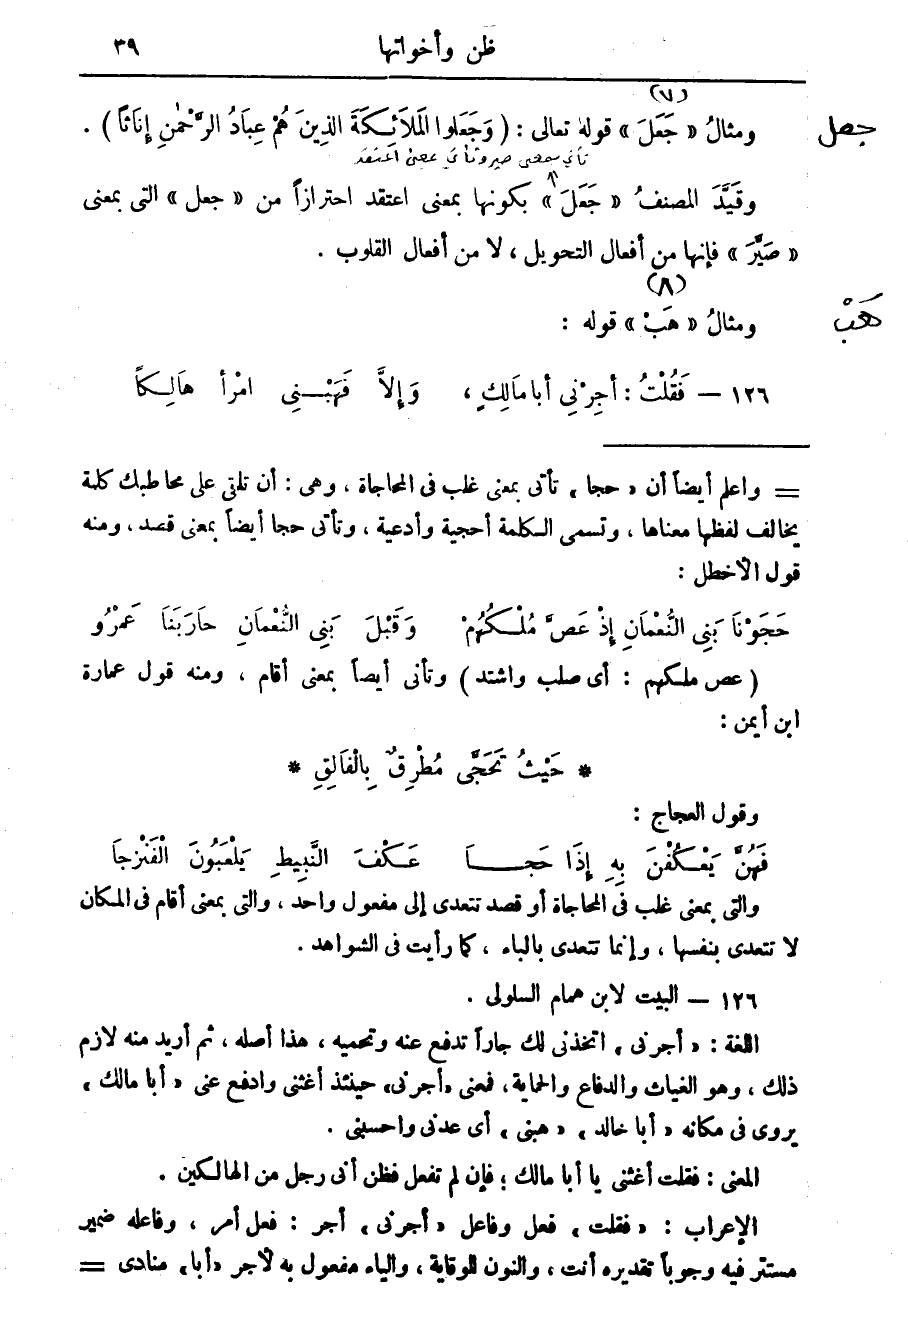 ظن وأخواتها ٣٩
(٧)
جعل
ومثالُ « جَعَلَ » قولهُ تعالى : ( وَجَعَلوا الْمَلاَئِكَةَ الذِينَ هُمْ عِبَادُ الرَّحْمٰنِ إِنَاثاً ) .
تأتي بمعنى صير وتأتي بمعنى اعتقد
وقَيَّدَ المصنفُ « جَعَلَ » بكونها بمعنى اعتقد احترازاً من « جعل » التى بمعنى
« صَيَّرَ » فإنها من أفعال التحويل ، لا من أفعال القلوب .
(٨)
هَبْ
ومثالُ « هَبْ » قوله :
١٢٦ — فَقُلْتُ : أَجِرْنِي أبا مَالِكٍ ، وَإِلاَّ فَهَبْـنِى امْرأً هَالِـكاً
= واعلم أيضاً أن « حجا » تأتى بمعنى غلب فى المحاجاة ، وهى : أن تلقى على مخاطبك كلمة
يخالف لفظها معناها ، وتسمى الكلمة أحجية وأدعية ، وتأتى حجا أيضاً بمعنى قصد ، ومنه
قول الأخطل :
حَجَوْنَا بَنِى النُّعْمَانِ إِذْ عَصَّ مُلْكُهُمْ وَقَبْلَ بَنِى النُّعْمَانِ حَارَبَنَا عَمْرُو
( عص ملكهم : أى صلب واشتد ) وتأتى أيضاً بمعنى أقام ، ومنه قول عمارة
ابن أيمن :
* حَيْثُ تَحَجَّى مُطْرِقٌ بِالْفَالِقِ *
وقول العجاج :
فَهُنَّ يَعْـكُفْنَ بِهِ إِذَا حَجَـا عَـكْفَ النَّبِيطِ يَلْعَبُونَ الْفَنْزَجَا
والتى بمعنى غلب فى المحاجاة أو قصد تتعدى إلى مفعول واحد ، والتى بمعنى أقام فى المكان
لا تتعدى بنفسها ، وإنما تتعدى بالباء ، كما رأيت فى الشواهد .
١٢٦ — البيت لابن همام السلولى .
اللغة : « أجرنى » اتخذنى لك جاراً تدفع عنه وتحميه ، هذا أصله ، ثم أريد منه لازم
ذلك ، وهو الغياث والدفاع والحماية ، فمعنى «أجرنى» حينئذ أغثنى وادفع عنى « أبا مالك »
يروى فى مكانه « أبا خالد » « هبنى » أى عدنى واحسبنى .
المعنى : فقلت أغثنى يا أبا مالك ؛ فإن لم تفعل فظن أنى رجل من الهالكين .
الإعراب : « فقلت » فعل وفاعل « أجرنى » أجر : فعل أمر ، وفاعله ضمير
مستتر فيه وجوباً تقديره أنت ، والنون للوقاية ، والياء مفعول به لأجر «أبا» منادى =